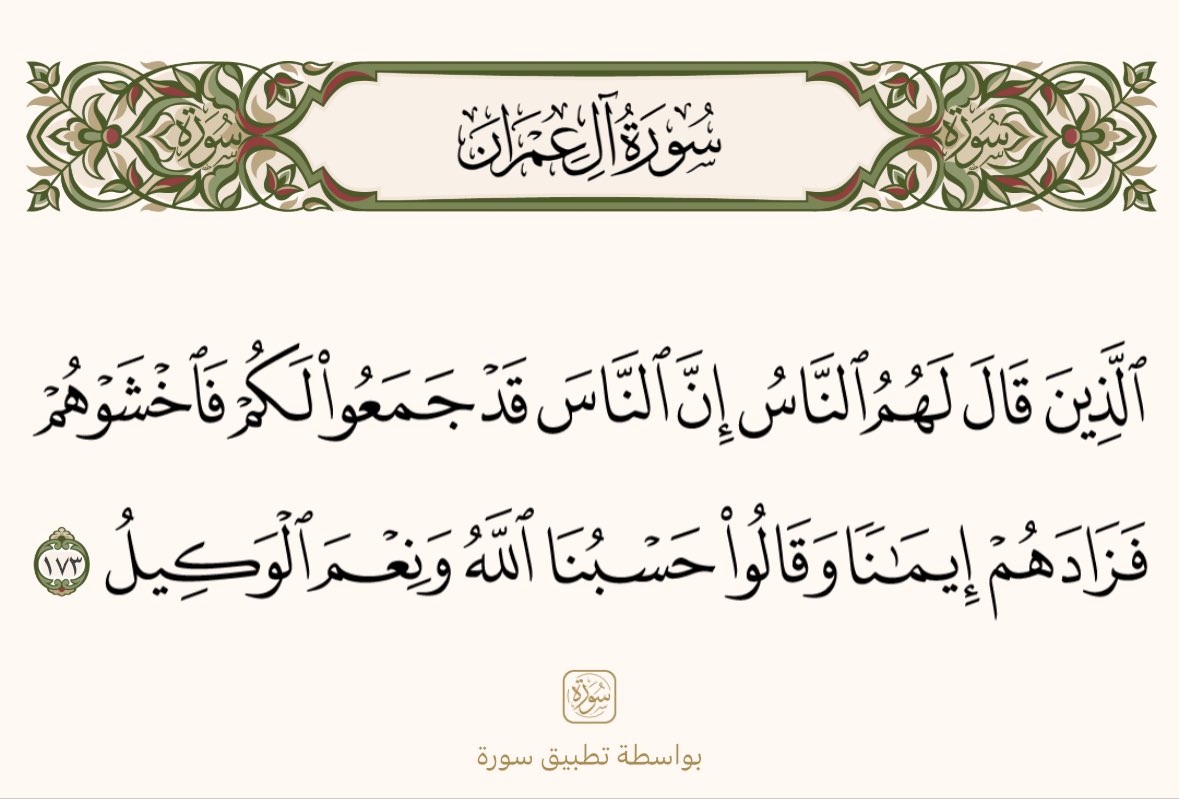 سُورَةُ آلِ عِمْرَان
ٱلَّذِينَ قَالَ لَهُمُ ٱلنَّاسُ إِنَّ ٱلنَّاسَ قَدْ جَمَعُوا۟ لَكُمْ فَٱخْشَوْهُمْ
فَزَادَهُمْ إِيمَـٰنًا وَقَالُوا۟ حَسْبُنَا ٱللَّهُ وَنِعْمَ ٱلْوَكِيلُ ١٧٣
سورة
بواسطة تطبيق سورة